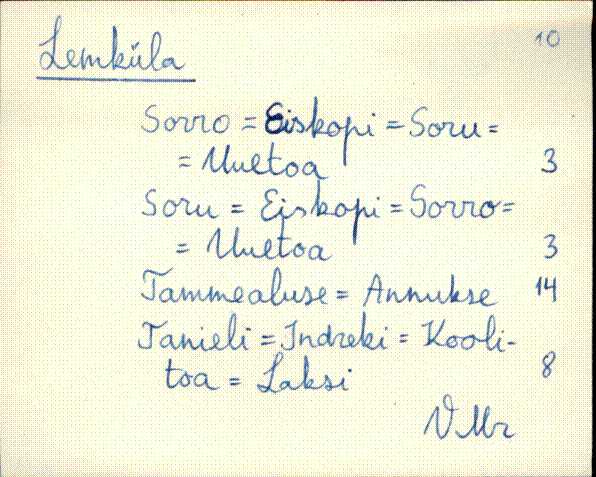 Lemküla 10
Sorro = Eiskopi = Soru =
= Uuetoa 3
Soru = Eiskopi = Sorro =
= Uuetoa 3
Tammealuse = Annukse 14
Tanieli = Indreki = Kooli-
toa = Laksi 8
VMr